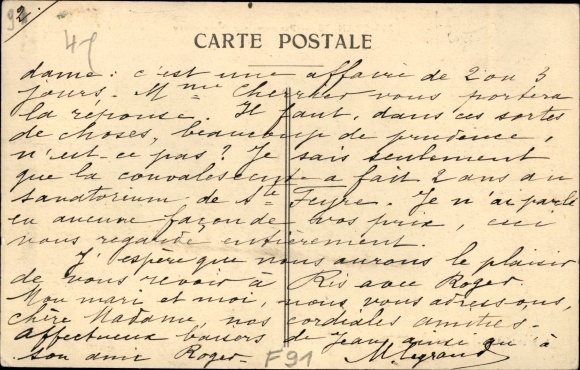 2.
45
CARTE POSTALE
dame : c'est une affaire de 2 ou 3
jours. Mme Cherrier vous portera
la réponse. Il faut, dans ces sortes
de choses, beaucoup de prudence,
n'est-ce pas ? Je sais seulement
que la convalescente a fait 2 ans du
sanatorium de Ste Feyre. Je n'ai parlé
en aucune façon de vos prix, ceci
vous regarde entièrement.
J'espère que nous aurons le plaisir
de vous revoir à Ris avec Roger.
Mon mari et moi, nous vous adressons,
chère Madame, nos cordiales amitiés.
Affectueux baisers de Jean ainsi qu'à
son ami Roger. MLegrand
F91